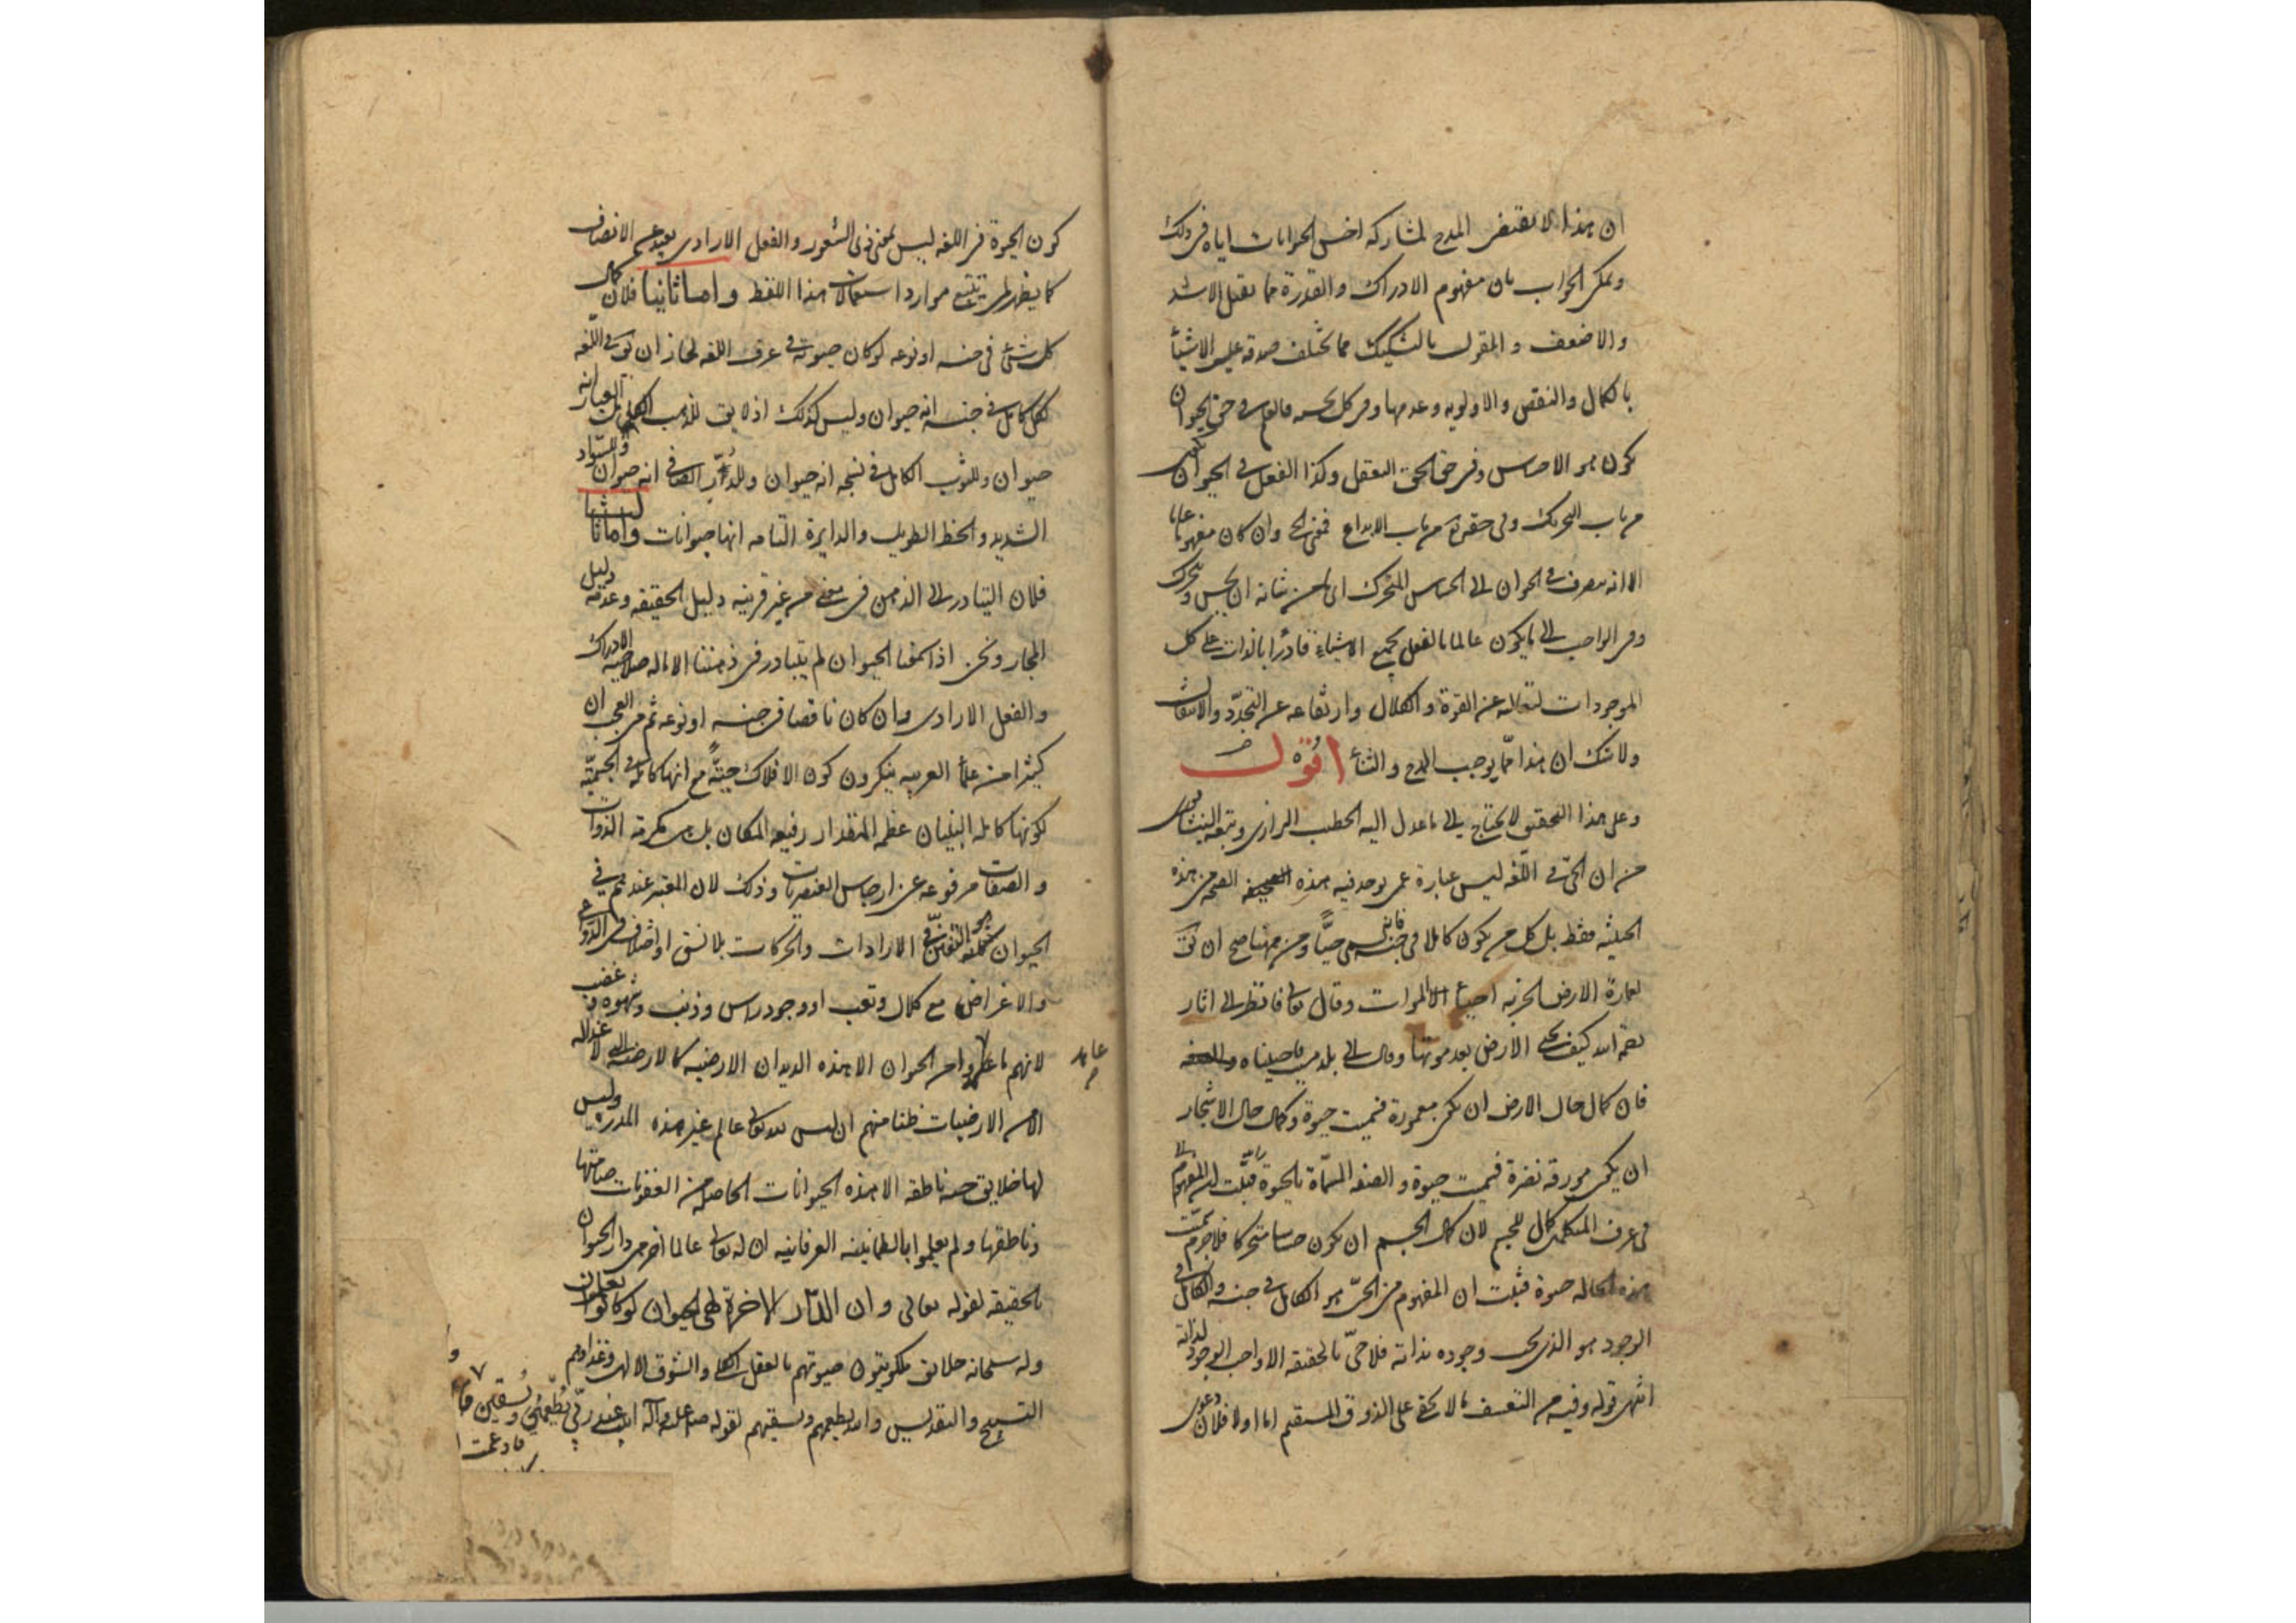 ان هذا لا يقتضى المدح لمشاركه اخس الحيوانات اياه فى ذلك
ويمكن الجواب بان مفهوم الادراك والقدرة مما يقبل الاشد
والاضعف والمقول بالتشكيك مما يختلف صدقه على الاشيأ
بالكمال والنقص والاولويه وعدمها وفى كل بحسبه فالعلم فى حق الحيوان
يكون هو الاحساس وفى حق الحق التعقل وكذا الفعل فى الحيوان
من باب التحريك وفى حقه من باب الابداع فمعنى الحى وان كان مفهوما عاما
الا انه يصرف فى الحيوان الى الحساس المتحرك اى من شانه ان يحس ويتحرك
وفى الواجب الى ما يكون عالما بالفعل بجميع الاشياء قادرا بالذات على كل
الموجودات لتعاليه عن القوة والكلال وارتفاعه عن التجدد والانتقالات
ولا شك ان هذا مما يوجب المدح والثنأ اقول
وعلى هذا التحقيق لا يحتاج الى ما عدل اليه الخطيب الرازى وتبعه النيشابورى
من ان الحى فى اللغه ليس عبارة عمن يوجد فيه هذه الصحه من هذه
الحيثيه فقط بل كل من يكون كاملا فى جنسه فانه يسمى حيا ومن ههنا صح ان يق
لعمارة الارض الخربه احياء الموات وقال تعالى فانظر الى اثار
رحمة الله كيف يحيى الارض بعد موتها وقال الى بلد ميت فاحييناه
فان كمال حال الارض ان يكون معمورة فسميت حيوة وكمال حال الاشجار
ان يكون مورقه نضرة فسميت حيوة والصفه المسماة بالحيوة
فى عرف المتكلمين كمال للجسم لان كمال الجسم ان يكون حساسا متحركا فلا جرم سميت
هذه الحاله حيوة فثبت ان المفهوم من الحى هو الكامل فى جنسه والكامل فى
الوجود هو الذى يجب وجوده بذاته فلا حى بالحقيقه الا واجب الوجود لذاته
انتهى قوله وفيه من التعسف ما لا يخفى على الذوق المستقيم اما اولا فلان دعوى
كون الحيوة فى اللغه ليس بمعنى ذى الشعور والفعل الارادى بعيد عن الانصاف
كما يظهر لمن تتبع موارد استعمالات هذا اللفظ واما ثانيا فلان كمال
كل شئ فى جنسه او نوعه لو كان حيوته فى عرف اللغه لجاز ان يق فى اللغه
لكل كامل فى جنسه انه حيوان وليس كذلك اذ لا يق للذهب الكامل العيار انه
حيوان وللثوب الكامل فى نسجه انه حيوان وللدر الصافى انه حيوان وللسواد
الشديد والخط الطويل والدايرة التامه انها حيوانات واما ثالثا
فلان التبادر الى الذهن فى معنى من غير قرينه دليل الحقيقه وعدمه دليل
المجاز ونحن اذا سمعنا الحيوان لم يتبادر فى ذهننا الا ما له صلاحية الادراك
والفعل الارادى وان كان ناقصا فى جنسه او نوعه ثم من العجب ان
كثيرا من علمأ العربيه ينكرون كون الافلاك حيّة مع انها كاملة فى الجسميّة
لكونها كامله البنيان عظيم المقدار رفيعه المكان بل مكرمة الذوات
والصفات مرفوعه عن ارجاس العنصريات وذلك لان المعتبر عندهم فى
الحيوان التفنن فى الارادات والحركات بلا نسق او اختلاف فى الدواعى
والاغراض مع كلال وتعب او وجود راس وذنب وشهوه وغضب
لانهم ما علموا من الحيوان الا هذه الديدان الارضيه
الا من الارضيات ظنا منهم ان ليس لله تعالى عالم غير هذه المدره وليس
لها خلايق حيه ناطقه الا هذه الحيوانات الحاصله من العفونات صامتها
وناطقها ولم يعلموا بالطمانينه العرفانيه ان له تعالى عالما اخر هى دار الحيوان
بالحقيقه لقوله تعالى وان الدار الاخرة لهى الحيوان لو كانوا يعلمون
وله سبحانه خلائق ملكوتيون حيوتهم بالعقل الكلى والشوق الالهى وغذاوهم
التسبيح والتقديس والله يطعمهم ويسقيهم لقوله صلى الله عليه وآله ابيت عند ربى يطعمنى ويسقين